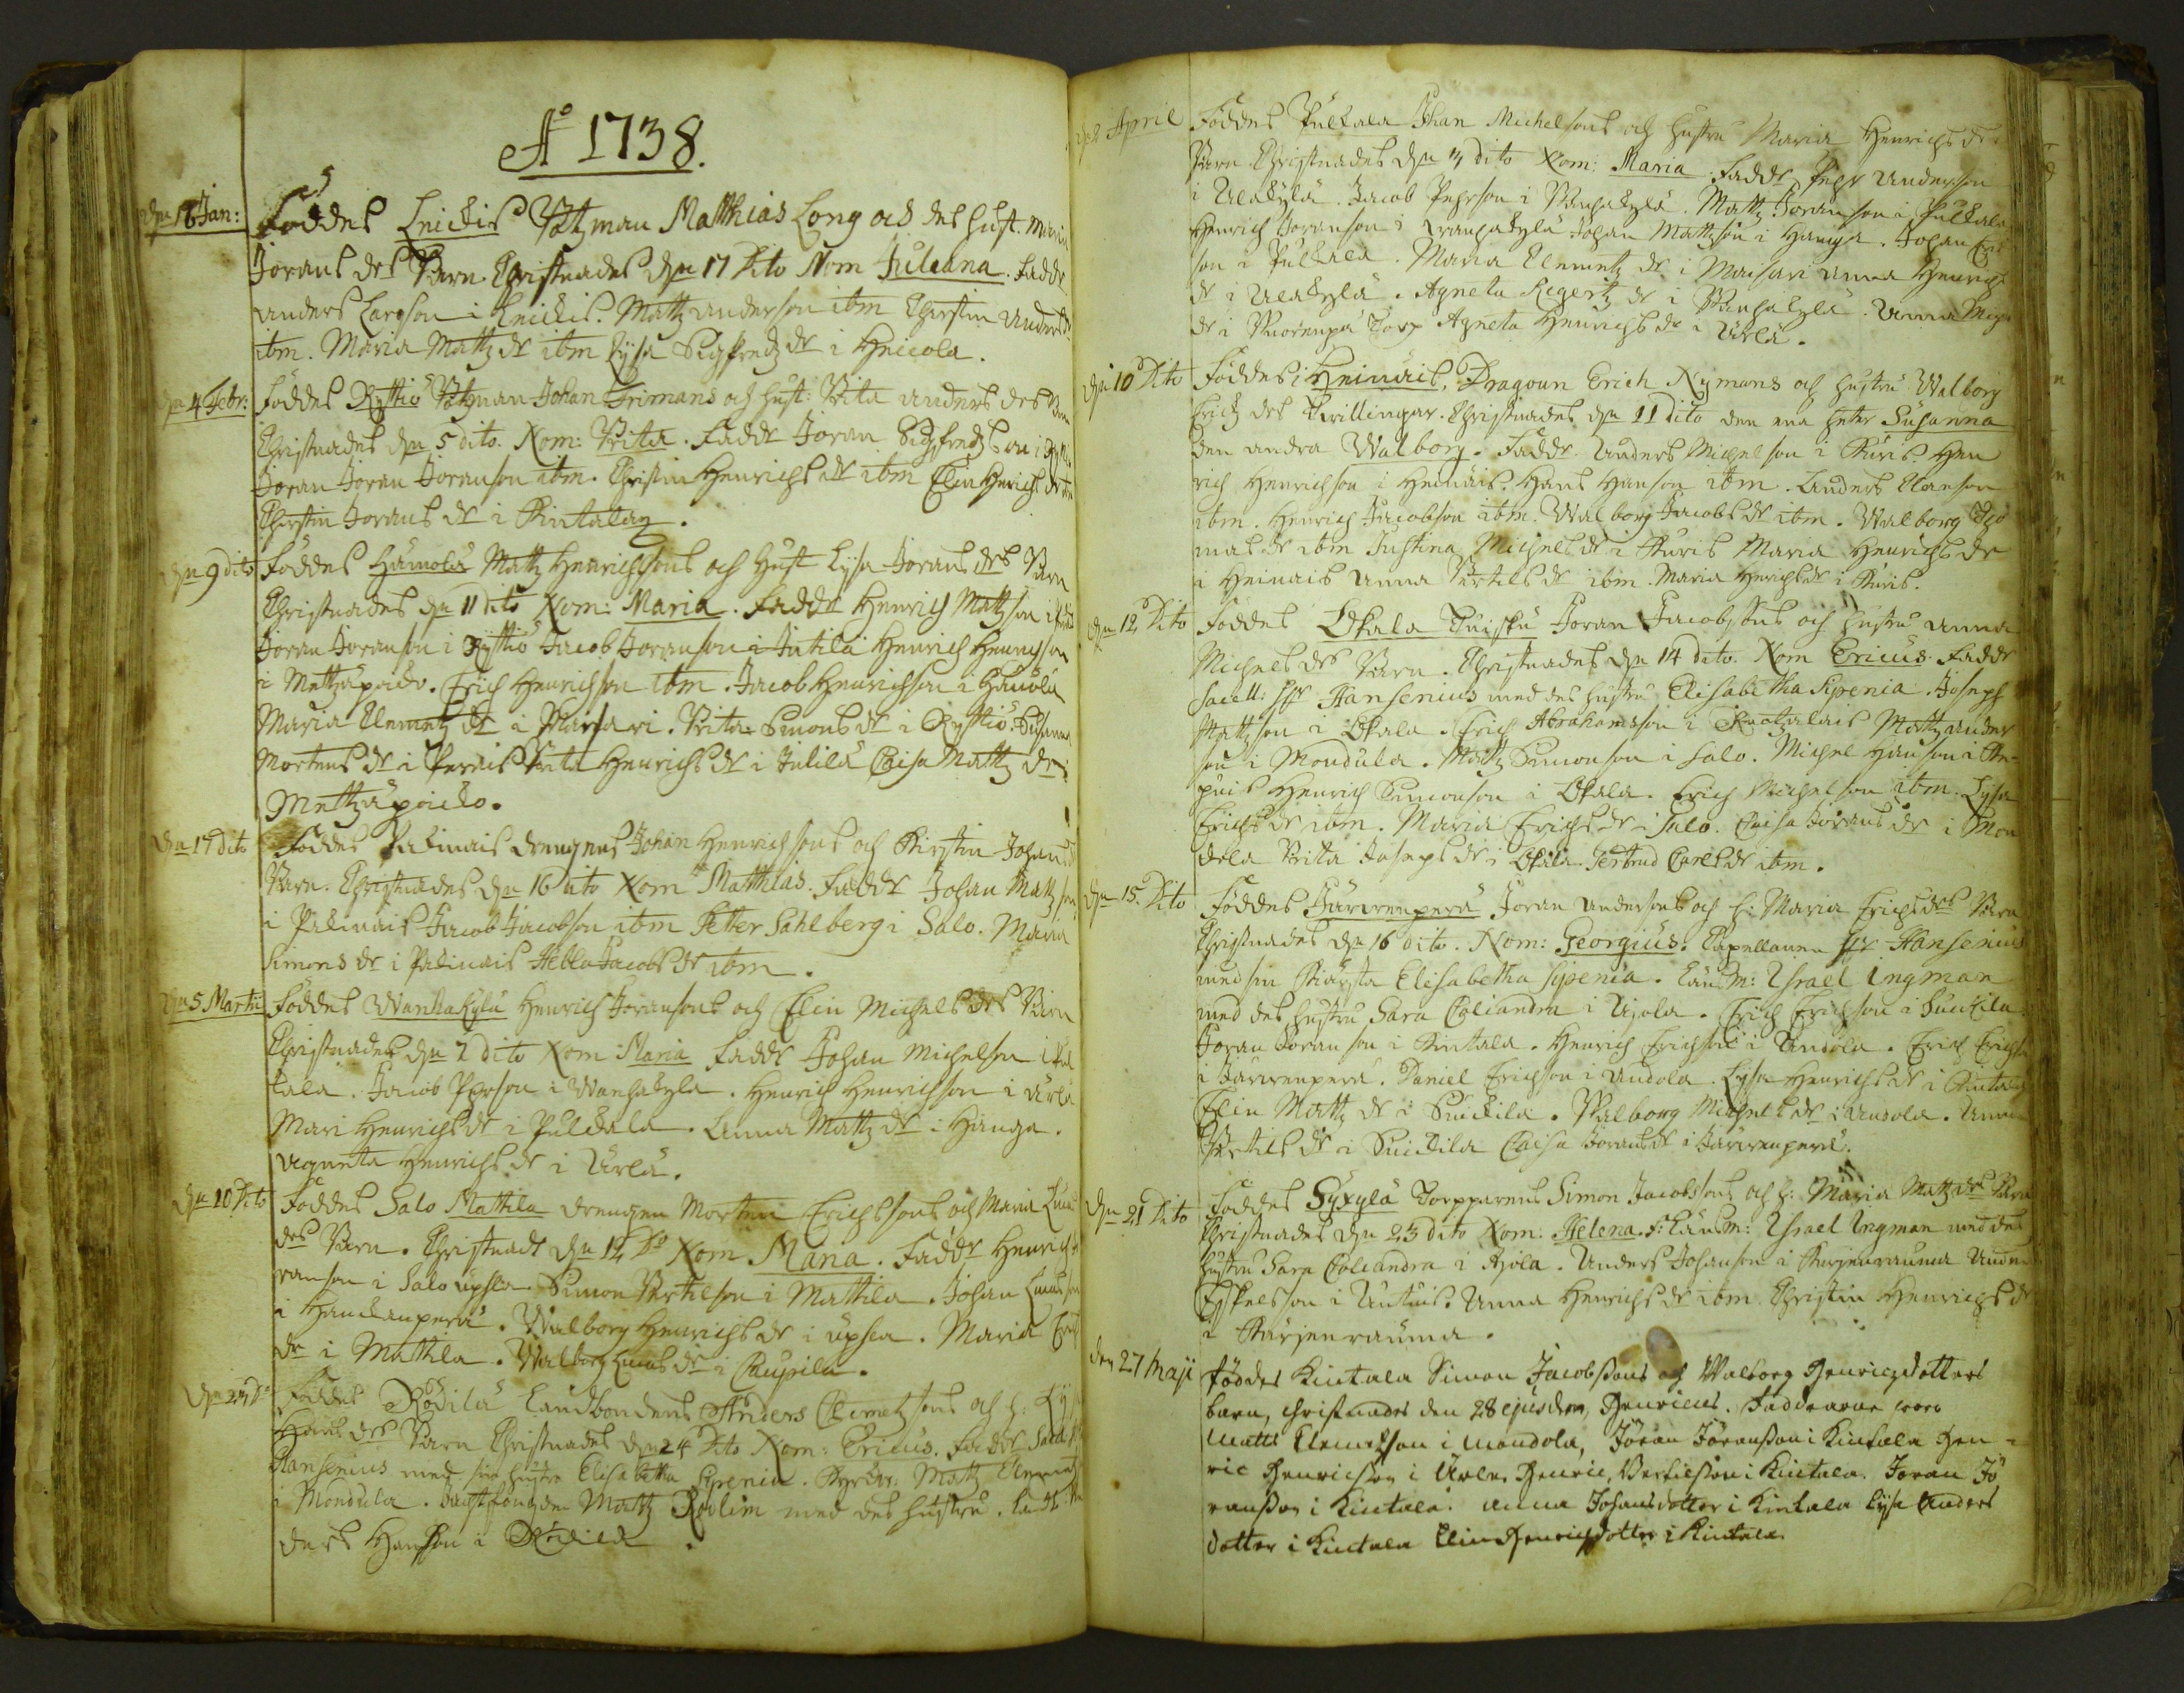 Aº 1738.
den 16 Jan: Föddes Leickis Båtzman Matthias Long och des hust. Maria
Jörans drs Barn. Christnades den 17 Dito Nom Juliana. Faddr
Anders Larsson i Leickis. Mattz Anderson ibm Christin Anders
ibm. Maria Mattz dr ibm Lysa Sigfredz dr i Heicola.
den 4 Febr: Föddes Ryttiö Båtzman Johan Frimans och hust: Brita Anders drs Barn
Christnades den 5 dito. Nom: Brita. Faddr Jöran Sigfredson i
Jöran Jöran Jöranson ibm. Christin Henrichs dr ibm Elin Henrichs dr ibm
Christin Jörans dr i Kintala.
den 9 dito Föddes Hämola Mattz Henrichsons och Hust Lysa Jörans drs Barn
Christnades den 11 dito Nom: Maria. Faddr Henrich Mattzson i
Jöran Jöranson i Ryttiö Jacob Jöranson i Jutila Henrich Henrichson
i Mettäpälo. Erich Henrichson ibm. Jacob Henrichson i Hämola
Maria Clemetz dr i Maisari. Brita Simons dr i Ryttiö. Susanna
Mortens dr i Brita Henrichs dr i Jutila Caisa Mattz dr i
Mettzäpälo.
den 17 dito Föddes Palinais drengens Johan Henrichsons och Kirstin Johans
Barn. Christnades den 16 dito Nom Matthias. Faddr Johan Mattzson
i Palinais Jacob Jacobson ibm Petter Sahlberg i Salo. Maria
Simons dr i Palinais Hebla Jacobs dr ibm.
den 5 Martii Föddes Wanhakylä Henrich Jöransons och Elin Michels drs Barn
Christnades den 7 dito Nom Maria Faddr Johan Michelson i Pul
kala. Jacob Pehrson i Wanhakylä. Henrich Henrichson i Urla
Mari Henrichs dr i Pulkala. Anna Mattz dr i Hanga.
Agneta Henrichs dr i Urla.
den 10 Dito Föddes Salo Mattila drengen Morten Erichssons och Maria
drs Barn. Christnadt den 12 Do Nom Maria. Faddr Henrich
ranson i Salo Upsla Simon Bertilson i Mattila. Johan
i Hanckanperä. Walborg Henrichs dr i Upsla. Maria Erichs
dr i Mattila. Walborg dr i Caupila.
den 24 Do Föddes Rödilä Landbondens Anders Clemetsons och h. Ly
Hans drs Barn Christnades den 24 Dito Nom: Ericus. Faddr Sacell:
Hansenius med sin hustru Elisabetha Sipenia. Mattz Clemetz
i Mondola. Mattz Rodlin med des hustru.
ders Hansson i Rödila.
April Föddes Pulkala Johan Michelsons och hustru Maria Henrichs dr
Barn Christnades den 4 dito Nom: Maria. Faddr Pehr Anderson
i Alakylä. Jacob Pehrson i Wanhakylä. Mattz Jöranson i Pulkala
Henrich Jöranson i Wanhakylä Johan Mattzson i Hanga. Johan Erich
son i Pulkala. Maria Clemetz dr i Maisari Anna Henrichs
dr i Alakylä. Agneta Regertz dr i Wanhakylä. Anna
dr i Torp Agneta Henrichs dr i Urla.
den 10 Dito Föddes i Heinais, Dragoun Erich Nymans och hustru Walborg
Erichz drs Twillingar. Christnades den 11 dito den ena heter Susanna
den andra Walborg. Faddr. Anders Michelson i Kuris. Hen
rich Henrichson i Heinais. Hans Hanson ibm. Anders Clauson
ibm. Henrich Jacobson ibm. Walborg Jacobs dr ibm. Walborg Tho
mas dr ibm Justina Michels dr i Kuris Maria Henrichs dr
i Heinais Anna Bertils dr ibm. Maria Henrichs dr i Kuris.
den 12 Dito Föddes Okala Tuisku Jöran Jacobsons och hustru Anna
Michels drs Barn. Christnades den 14 dito. Nom Ericus. Faddr
Sacell: Hr Hansenius med des hustru Elisabetha Sipenia. Joseph
Mattzson i Okala. Erich Abrahamsson i Mattz Ander
son i Mondola. Mattz Simonson i Salo. Michel Hanson i
Henrich Simonson i Okala. Erich Michelson ibm. Lysa
Erichs dr ibm. Maria Erichs dr i Salo. Caisa Jörans dr i Mon
dola Brita Josephs dr i Okala. Jertrud Carls dr ibm.
den 15. Dito Föddes Järwenperä Jöran Andersons och h: Maria Erichs drs Barn
Christnades den 16 dito. Nom: Georgius. Capellanen Hr Hansenius
med sin Kiäresta Elisabetha Sipenia. Länsm: Israel Ingman
med des hustru Sara Coliandra i Ajola. Erich Erichson i Suckila.
Jöran Jöranson i Kintala. Henrich Erichson i Andola. Erich Erichson
i Järwenperä. Daniel Erichson i Andola. Lysa Henrichs dr i Kintala
Elin Mattz dr i Suckila. Walborg Michels dr i Andola. Anna
Bertils dr i Suickila Caisa Jörans dr i Järwenperä.
den 21 Dito Föddes Syxylä Torpparens Simon Jacobssons och h: Maria Mattz drs Barn
Christnades den 23 dito Nom: Helena. F: Länsm: Israel Ingman med des
hustru Sara Coliandra i Ajola. Anders Johanson i Karjenrauma Anders
Eskelsson i Untuis. Anna Henrichs dr ibm Christin Henrichs dr
i Karjenrauma.
den 27 Maji föddes Kintala Simon Jacobssons och Walborg Henricsdotters
barn, christnades den 28 ejusdem, Henricus. Faddrarne woro
Matts Clemetson i Mondola, Jöran Jöransson i Kintala Hen-
ric Henricsson i Urla Henric, Bertilsson i Kintala. Jöran Jö
ransson i Kintala. Anna Johansdotter i Kintala Lysa Anders
dotter i Kintala Elin Henricsdotter i Kintala